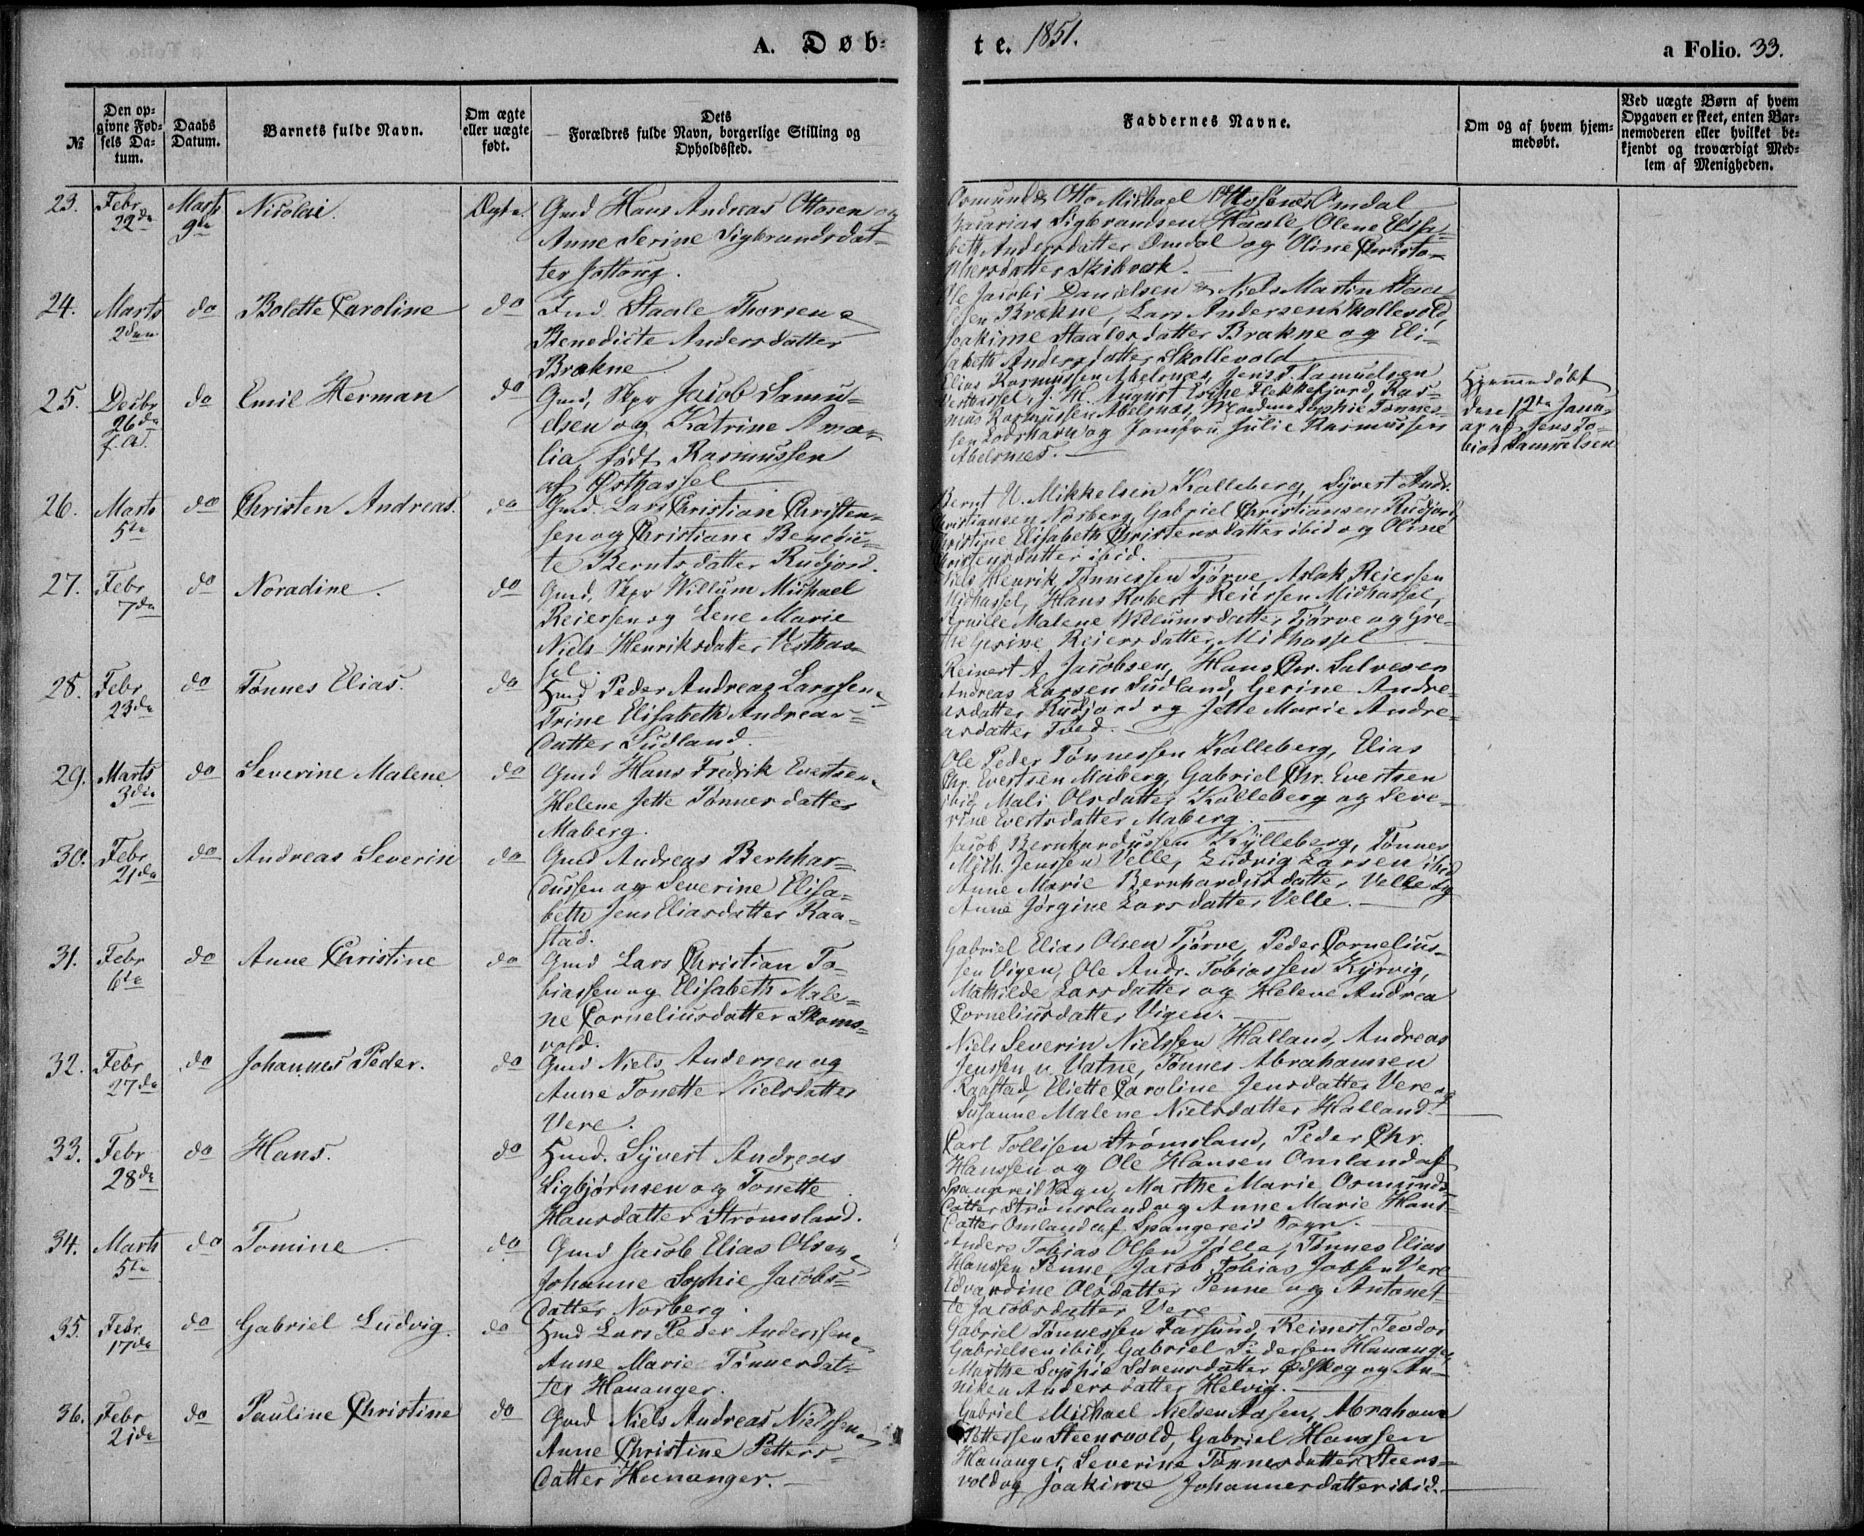 A. Døb-
te. 1851.
a Folio. 33.
№
Den op-
givne Fød-
sels Da-
tum.
Daabs
Datum.
Barnets fulde Navn.
Om ægte
eller uægte
født.
Dets
Forældres fulde Navn, borgerlige Stilling og
Opholdssted.
Faddernes Navne.
Om og af hvem hjem-
medøbt.
Ved uægte Børn af hvem
Opgaven er skeet, enten Bar-
nemoderen eller hvilket be-
kjendt og troværdigt Med-
lem af Menigheden.
23. Febr 22de
Marts 9de
Nicolai.
Ægte.
Gmd Hans Andreas Ottosen og
Anne Serine Sigbrandsdat-
ter Jottoug.
Osmund & Otto Michael Ottosen Omdal
Zacarias Sigbrandsen Haale, Olene Elisa-
beth Andersdatter Omdal og Oline Christo-
phersdatter Skibvæk.
24. Marts 2den
do
Bolette Caroline
do
Ind. Staale Thorsen &
Benedicte Andersdatter
Brækne
Ole Jacobi Danielsen & Niels Martin Staa-
lesen Brækne, Lars Andersen Skollevold,
Joakime Staalesdatter Brækne og Eli-
sabeth Andersdatter Skollevold
25. Decbr 26de f.A.
do
Emil Herman
do
Gmd, Skpr Jacob Samu-
elsen og Katrine Ama-
lia født Rasmussen
af Østhassel
Elias Rasmussen Abelsnæs, Jens T. Samuelsen
Vesthassel, J. H. August Esche Flekkefjord, Ras-
mus Rasmussen Abelsnæs, Madam Sophie Tønnes-
sen Loshavn og Jomfru Julie Rasmussen
Abelsnæs.
Hjemmedøbt
den 12te Janu-
ar af Jens To-
bias Samuelsen
26. Marts 5te
do
Christen Andreas.
do
Gmd. Lars Christian Christen-
sen og Christiane Benedic-
te Berntsdatter Rudjord.
Bernt N. Mikkelsen Kalleberg, Syvert Andr.
Christiansen Norberg, Gabriel Christiansen Rudjord,
Christine Elisabeth Christensdatter ibid og Oline
Christensdatter ibid.
27. Febr 7de
do
Noradine.
do
Gmd, Skpr Willum Michael
Reiersen og Lene Marie
Niels Henriksdatter Vesthas-
sel.
Niels Henrik Tønnessen Tjørve, Aslak Reiersen
Midhassel, Hans Robert Reiersen Midhassel,
Malene Willumsdatter Tjørve og Gre-
the Gerine Reiersdatter Midhassel
28. Febr 23de
do
Tønnes Elias.
do
Hmd Peder Andreas Larssen &
Trine Elisabeth Andreas-
datter Sudland.
Reinert A. Jacobsen, Hans Chr. Salvesen
Andreas Larsen Sudland, Gerine Andre-
asdatter Rudjord og Jette Marie Andre-
asdatter Tved.
29. Marts 3die
do
Severine Malene
do
Gmd Hans Fredrik Evertsen &
Helene Jette Tønnesdatter
Maberg.
Ole Peder Tønnessen Kalleberg, Elias
Chr. Evertsen Maberg, Gabriel Chr. Evertsen
ibid, Mali Olsdatter Kalleberg og Seve-
rine Evertsdatter Maberg.
30. Febr 21de
do
Andreas Severin
do
Gmd Andreas Bernhar-
dussen og Severine Elisa-
beth Jens Eliasdatter Raa-
stad.
Jacob Bernhardussen Kylleberg, Tønnes
Mich. Jenssen Velle, Ludvig Larsen ibid
Anne Marie Bernhardusdatter Velle og
Anne Jørgine Larsdatter Velle.
31. Febr 6te
do
Anne Christine
do
Gmd Lars Christian To-
biassen og Elisabeth Male-
ne Corneliusdatter Skoms-
vold.
Gabriel Elias Olsen Tjørve, Peder Cornelius-
sen Vigen, Ole Andr. Tobiassen Kyrvig,
Mathilde Larsdatter og Helene Andrea
Corneliusdatter Vigen.
32. Febr 27de
do
Johannes Peder.
do
Gmd Niels Andersen og
Anne Tonette Nielsdatter
Vere.
Niels Severin Nielssen Halland, Andreas
Jenssen n. Vatne, Tønnes Abrahamsen
Raastad, Eliette Caroline Jensdatter Vere og
Susanne Malene Nielsdatter Halland.
33. Febr 28de
do
Hans.
do
Hmd. Syvert Andreas
Sigbjørnsen og Tonette
Hansdatter Strømsland.
Carl Tollisen Strømsland, Peder Chr.
Hanssen og Ole Hansen Omland af
Spangereid Sogn, Marthe Marie Osmunds-
datter Strømsland og Anne Marie Hans-
datter Omland af Spangereid Sogn.
34. Marts 5te
do
Tomine
do
Gmd Jacob Elias Olsen &
Johanne Sophie Jacobs-
datter Norberg.
Anders Tobias Olsen Jølle, Tønnes Elias
Hanssen Penne, Jacob Tobias Jobsen Vere
Edvardine Olsdatter Penne og Antonet-
te Jacobsdatter Vere
35. Febr. 17de
do
Gabriel Ludvig.
do
Hmd Lars Peder Anderssen &
Anne Marie Tønnesdat-
ter Hananger.
Gabriel Tønnessen Farsund, Reinert Teodor
Gabrielsen ibid, Gabriel Pedersen Hananger,
Marthe Sophie Sørensdatter Ødskog og An-
niken Andersdatter Helvig.
36. Febr 21de
do
Pauline Christine
do
Gmd Niels Andreas Nielssen &
Anne Christine Petters-
datter Hananger.
Gabriel Michael Nielsen Aasen, Abraham
Pettersen Steensvold, Gabriel Hanssen
Hananger, Severine Tønnesdatter Steens-
vold og Joakime Johannesdatter ibid.